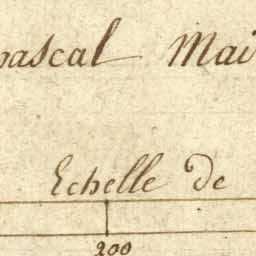 pascal Mai
Echelle de
200